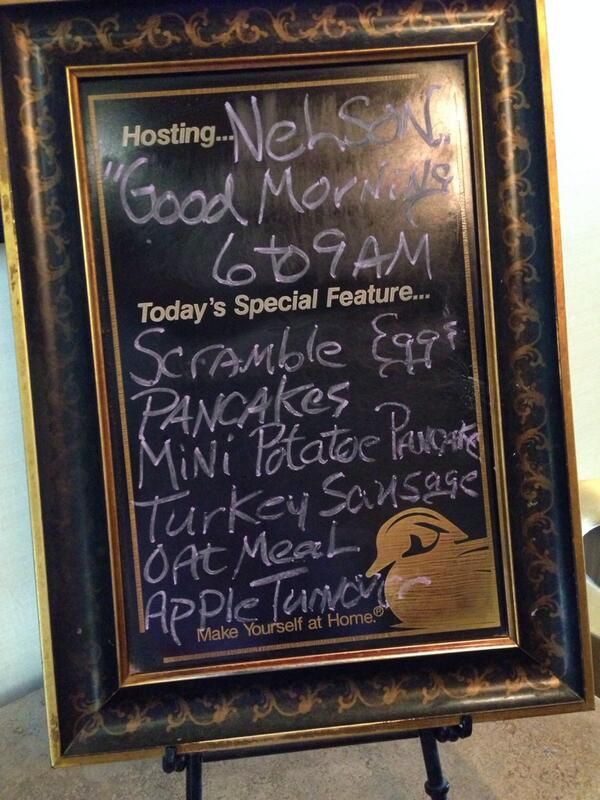 Hosting... Nelson,
"Good Morning
6 to 9 AM
Today's Special Feature...
Scramble Eggs
PANCAKes
MiNi Potatoe PANCAKe
Turkey Sausage
OAt MeaL
Apple Turnover
Make Yourself at Home.®